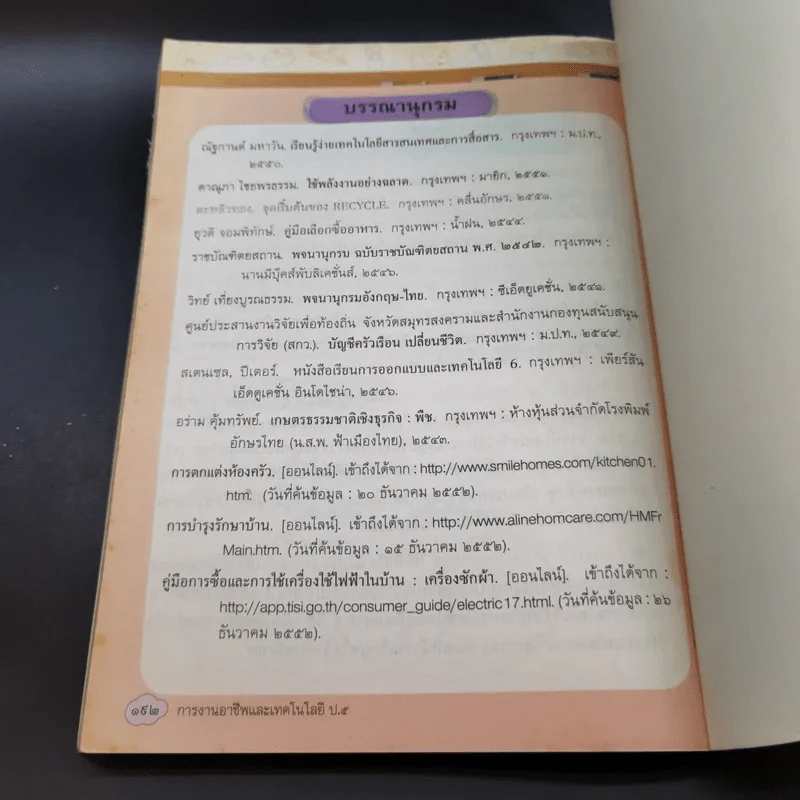 บรรณานุกรม
ณัฐกานต์ มหาวัน. เรียนรู้ง่ายเทคโนโลยีสารสนเทศและการสื่อสาร. กรุงเทพฯ : ม.ป.ท.,
๒๕๕๐.
ดาณุภา ไชยพรธรรม. ใช้พลังงานอย่างฉลาด. กรุงเทพฯ : มายิก, ๒๕๕๑.
ตะหลิวทอง. จุดเริ่มต้นของ RECYCLE. กรุงเทพฯ : คลื่นอักษร, ๒๕๕๑.
ยุวดี จอมพิทักษ์. คู่มือเลือกซื้ออาหาร. กรุงเทพฯ : น้ำฝน, ๒๕๔๔.
ราชบัณฑิตยสถาน. พจนานุกรม ฉบับราชบัณฑิตยสถาน พ.ศ. ๒๕๔๒. กรุงเทพฯ :
นานมีบุ๊คส์พับลิเคชั่นส์, ๒๕๔๖.
วิทย์ เที่ยงบูรณธรรม. พจนานุกรมอังกฤษ-ไทย. กรุงเทพฯ : ซีเอ็ดยูเคชั่น, ๒๕๔๑.
ศูนย์ประสานงานวิจัยเพื่อท้องถิ่น จังหวัดสมุทรสงครามและสำนักงานกองทุนสนับสนุน
การวิจัย (สกว.). บัญชีครัวเรือน เปลี่ยนชีวิต. กรุงเทพฯ : ม.ป.ท., ๒๕๔๙.
สเตนเซล, ปีเตอร์. หนังสือเรียนการออกแบบและเทคโนโลยี 6. กรุงเทพฯ : เพียร์สัน
เอ็ดดูเคชั่น อินโดไชน่า, ๒๕๔๖.
อร่าม คุ้มทรัพย์. เกษตรธรรมชาติเชิงธุรกิจ : พืช. กรุงเทพฯ : ห้างหุ้นส่วนจำกัดโรงพิมพ์
อักษรไทย (น.ส.พ. ฟ้าเมืองไทย), ๒๕๔๓.
การตกแต่งห้องครัว. [ออนไลน์]. เข้าถึงได้จาก : http://www.smilehomes.com/kitchen01.
htm. (วันที่ค้นข้อมูล : ๒๐ ธันวาคม ๒๕๕๒).
การบำรุงรักษาบ้าน. [ออนไลน์]. เข้าถึงได้จาก : http://www.alinehomcare.com/HMFr
Main.htm. (วันที่ค้นข้อมูล : ๑๕ ธันวาคม ๒๕๕๒).
คู่มือการซื้อและการใช้เครื่องใช้ไฟฟ้าในบ้าน : เครื่องซักผ้า. [ออนไลน์]. เข้าถึงได้จาก :
http://app.tisi.go.th/consumer_guide/electric17.html. (วันที่ค้นข้อมูล : ๒๖
ธันวาคม ๒๕๕๒).
๑๙๒ การงานอาชีพและเทคโนโลยี ป.๕